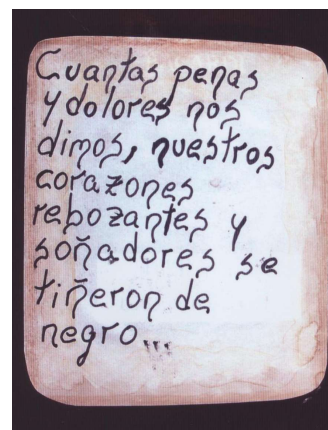 Cuantas penas
y dolores nos
dimos, nuestros
corazones
rebozantes y
soñadores se
tiñeron de
negro...